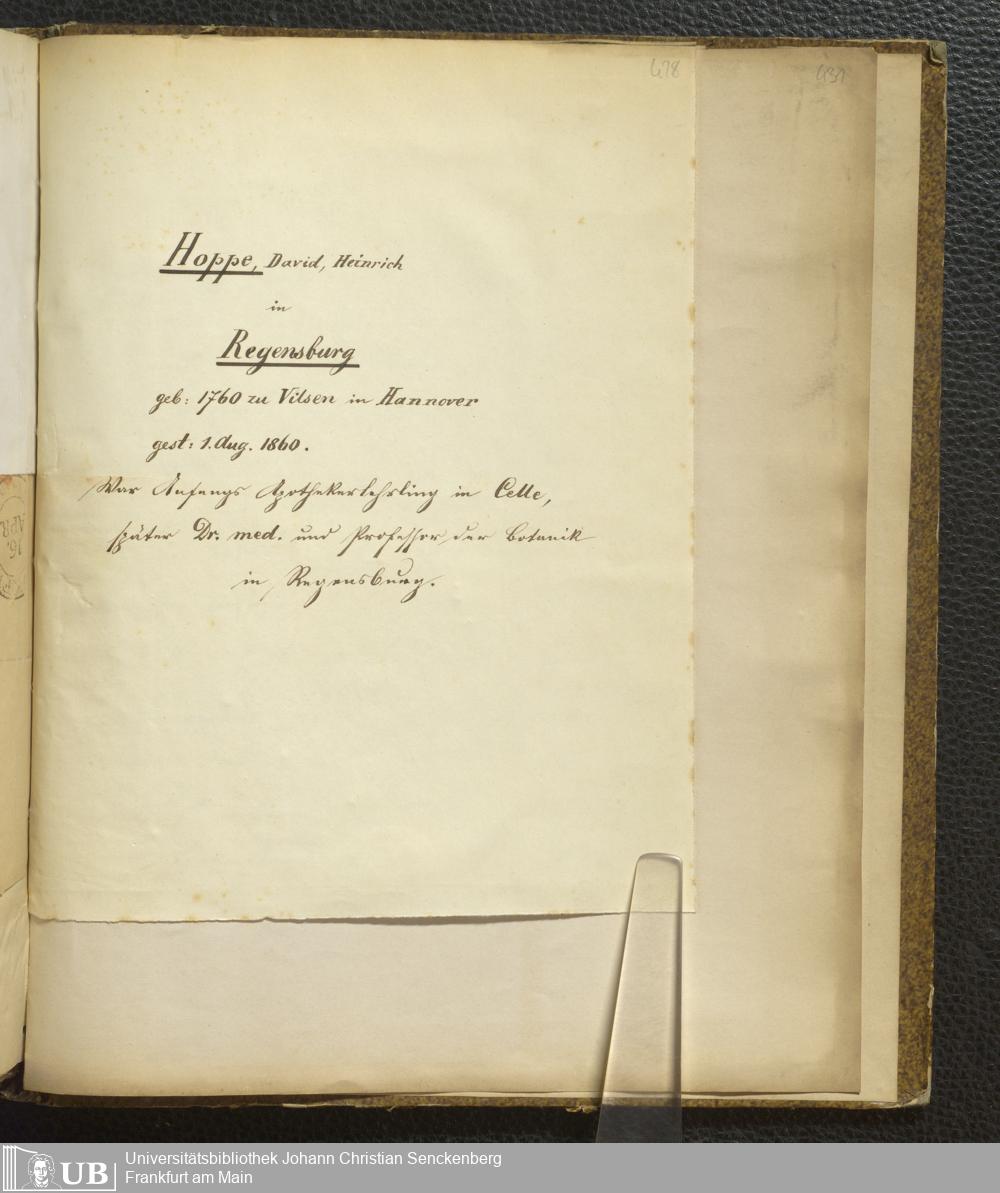 478
431
Hoppe, David, Heinrich
in
Regensburg
geb: 1760 zu Vilsen in Hannover
gest: 1. Aug. 1860.
War Anfangs Apothekerlehrling in Celle,
später Dr. med. und Professor der Botanik
in Regensburg.
16.
APR
UB
Universitätsbibliothek Johann Christian Senckenberg
Frankfurt am Main